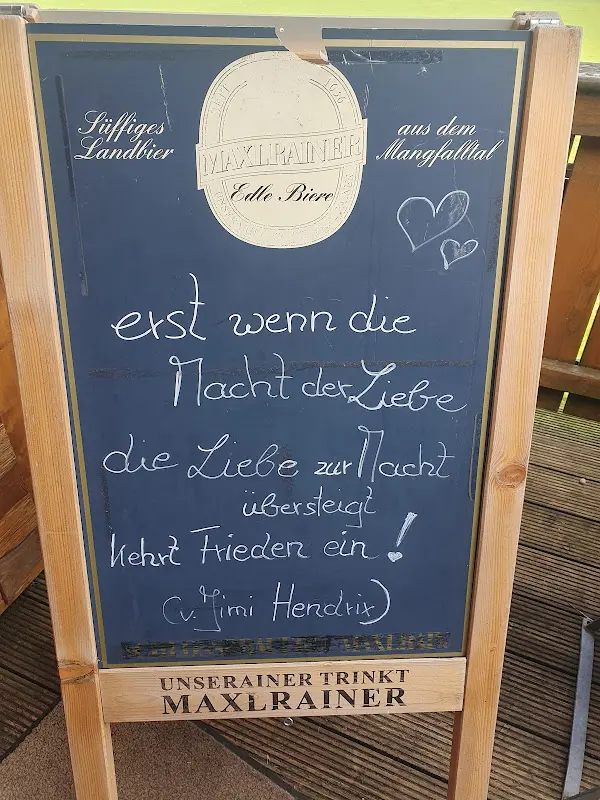 Süffiges
Landbier
SEIT 1636
MAXLRAINER
Edle Biere
aus dem
Mangfalltal
erst wenn die
Macht der Liebe
die Liebe zur Macht
übersteigt
kehrt Frieden ein!
(v. Jimi Hendrix)
UNSERAINER TRINKT
MAXLRAINER